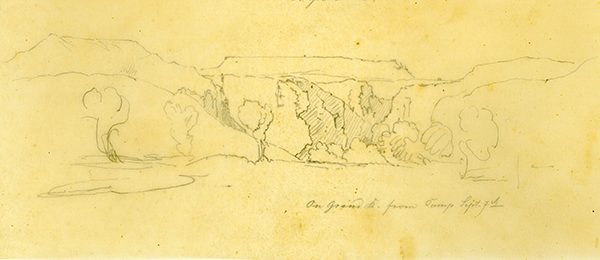 On Grand R. from Camp Sept. 9th